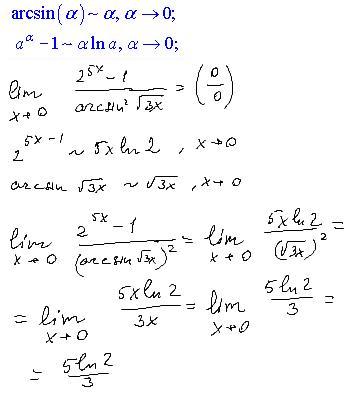 arcsin(α) ~ α, α → 0;
a^α − 1 ~ α ln a, α → 0;
lim x→0 (2^{5x} − 1)/(arcsin² √3x) = (0/0)
2^{5x−1} ~ 5x ln 2 , x→0
arcsin √3x ~ √3x , x→0
lim x→0 (2^{5x} − 1)/(arcsin √3x)² = lim x→0 (5x ln 2)/(√3x)² =
= lim x→0 (5x ln 2)/(3x) = lim x→0 (5 ln 2)/3 =
= (5 ln 2)/3